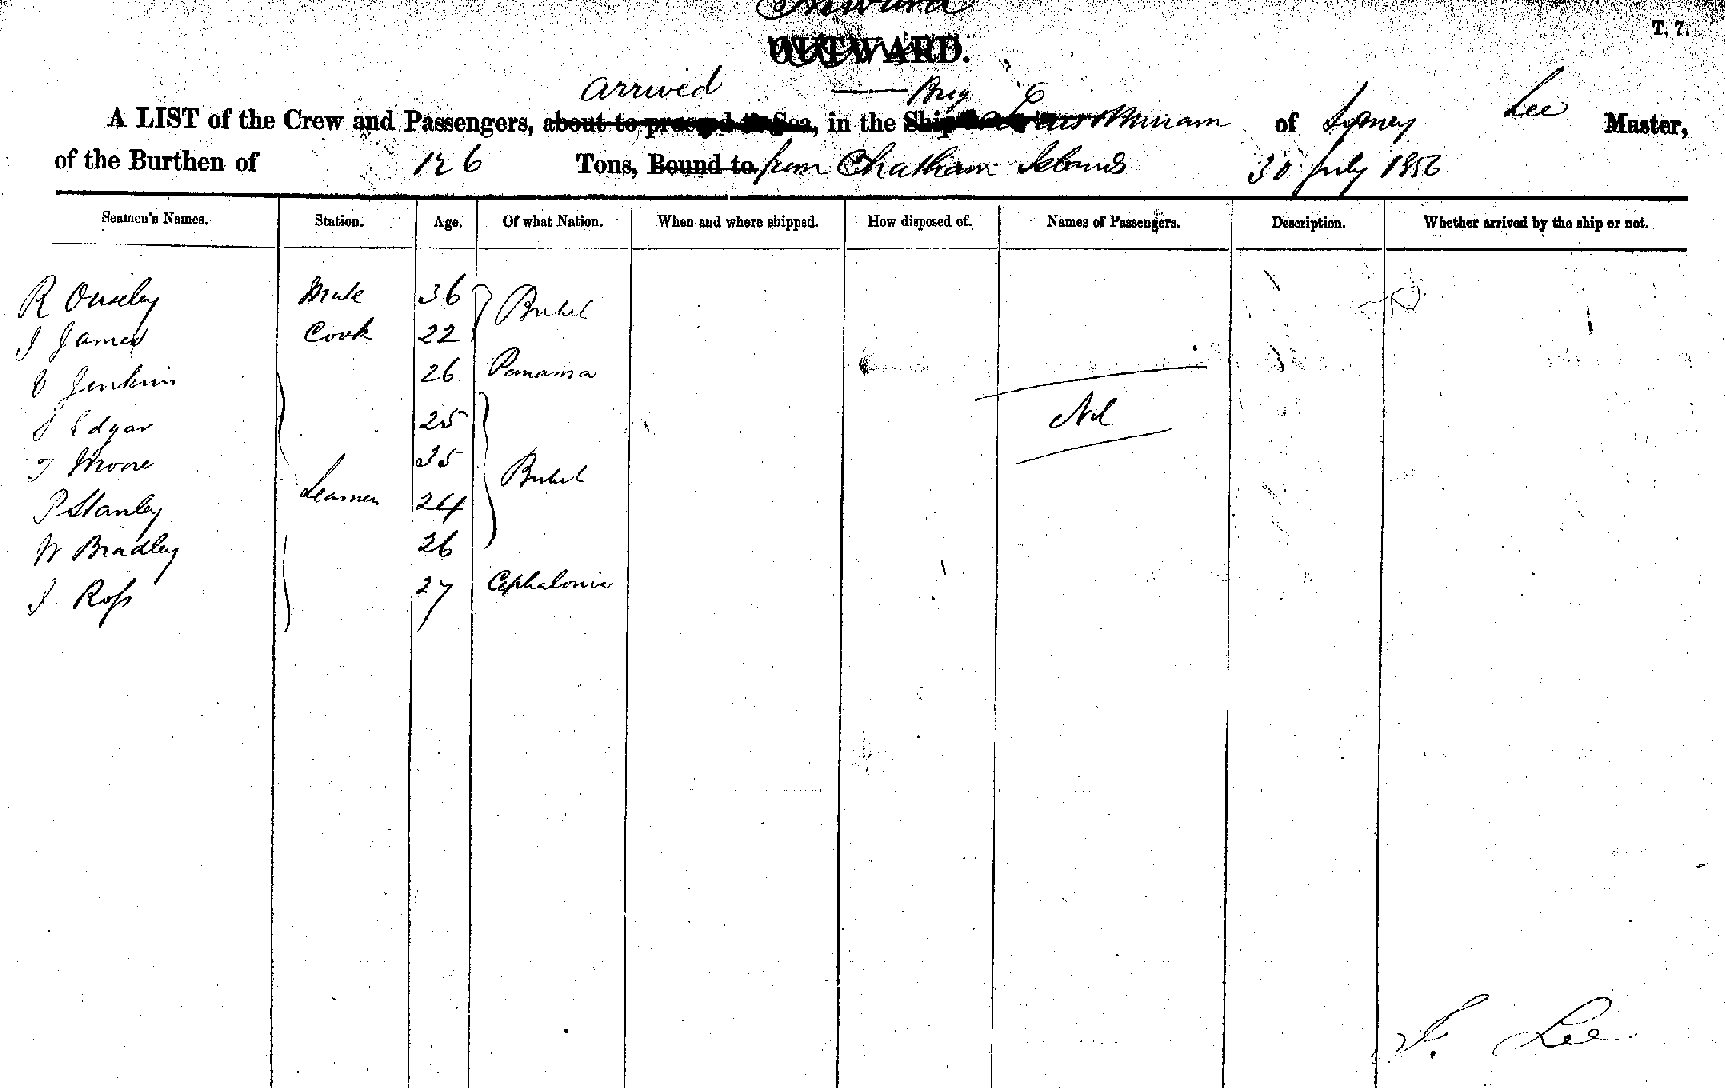 Inward
OUTWARD.
T. 7.
arrived Brig
A LIST of the Crew and Passengers, about to proceed to Sea, in the Ship Louis & Miriam of Sydney Lee Master,
of the Burthen of 126 Tons, Bound to from Chatham Islands 30 July 1856
Seamen's Names. Station. Age. Of what Nation. When and where shipped. How disposed of. Names of Passengers. Description. Whether arrived by the ship or not.
R Ouseley Mate 36 British
J James Cook 22
Jenkins 26 Panama
Edgar 25 Nil
T Moore 35 British
P Stanley Seamen 24
W Bradley 26
J Ross 27 Cephalonia
J. Lee